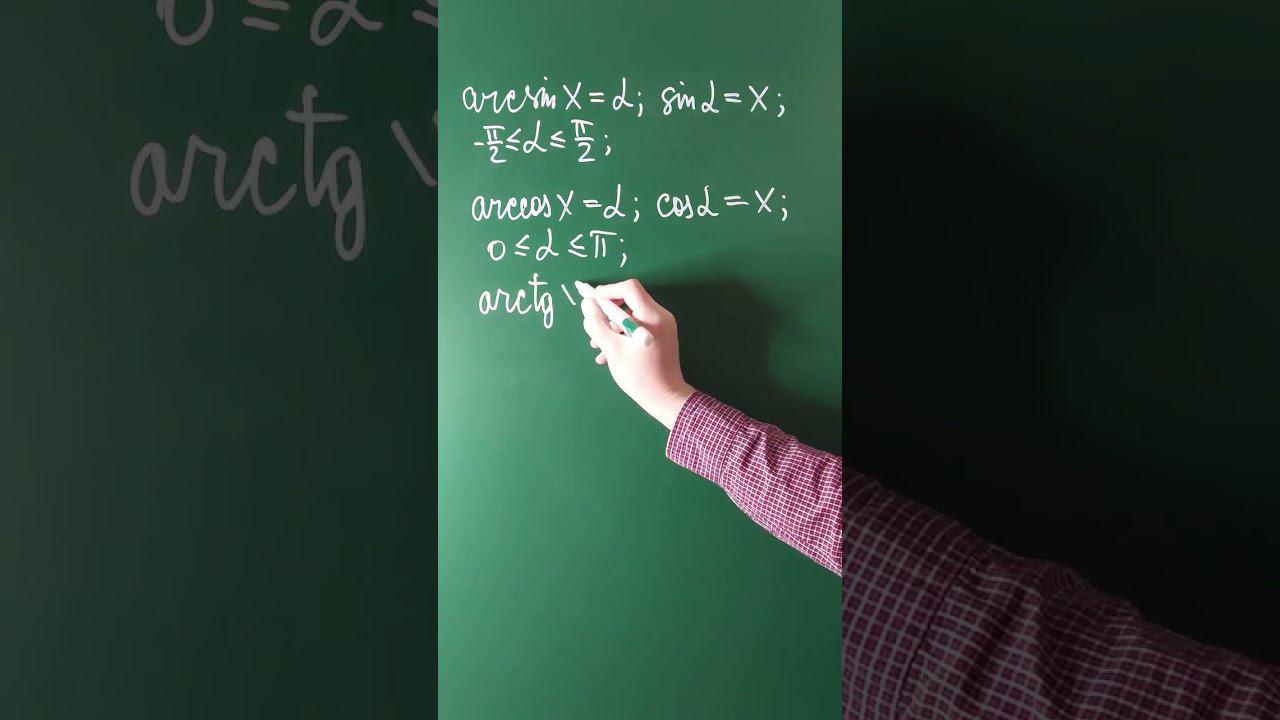 arcsin x = α; sin α = x;
-π/2 ≤ α ≤ π/2;
arccos x = α; cos α = x;
0 ≤ α ≤ π;
arctg \